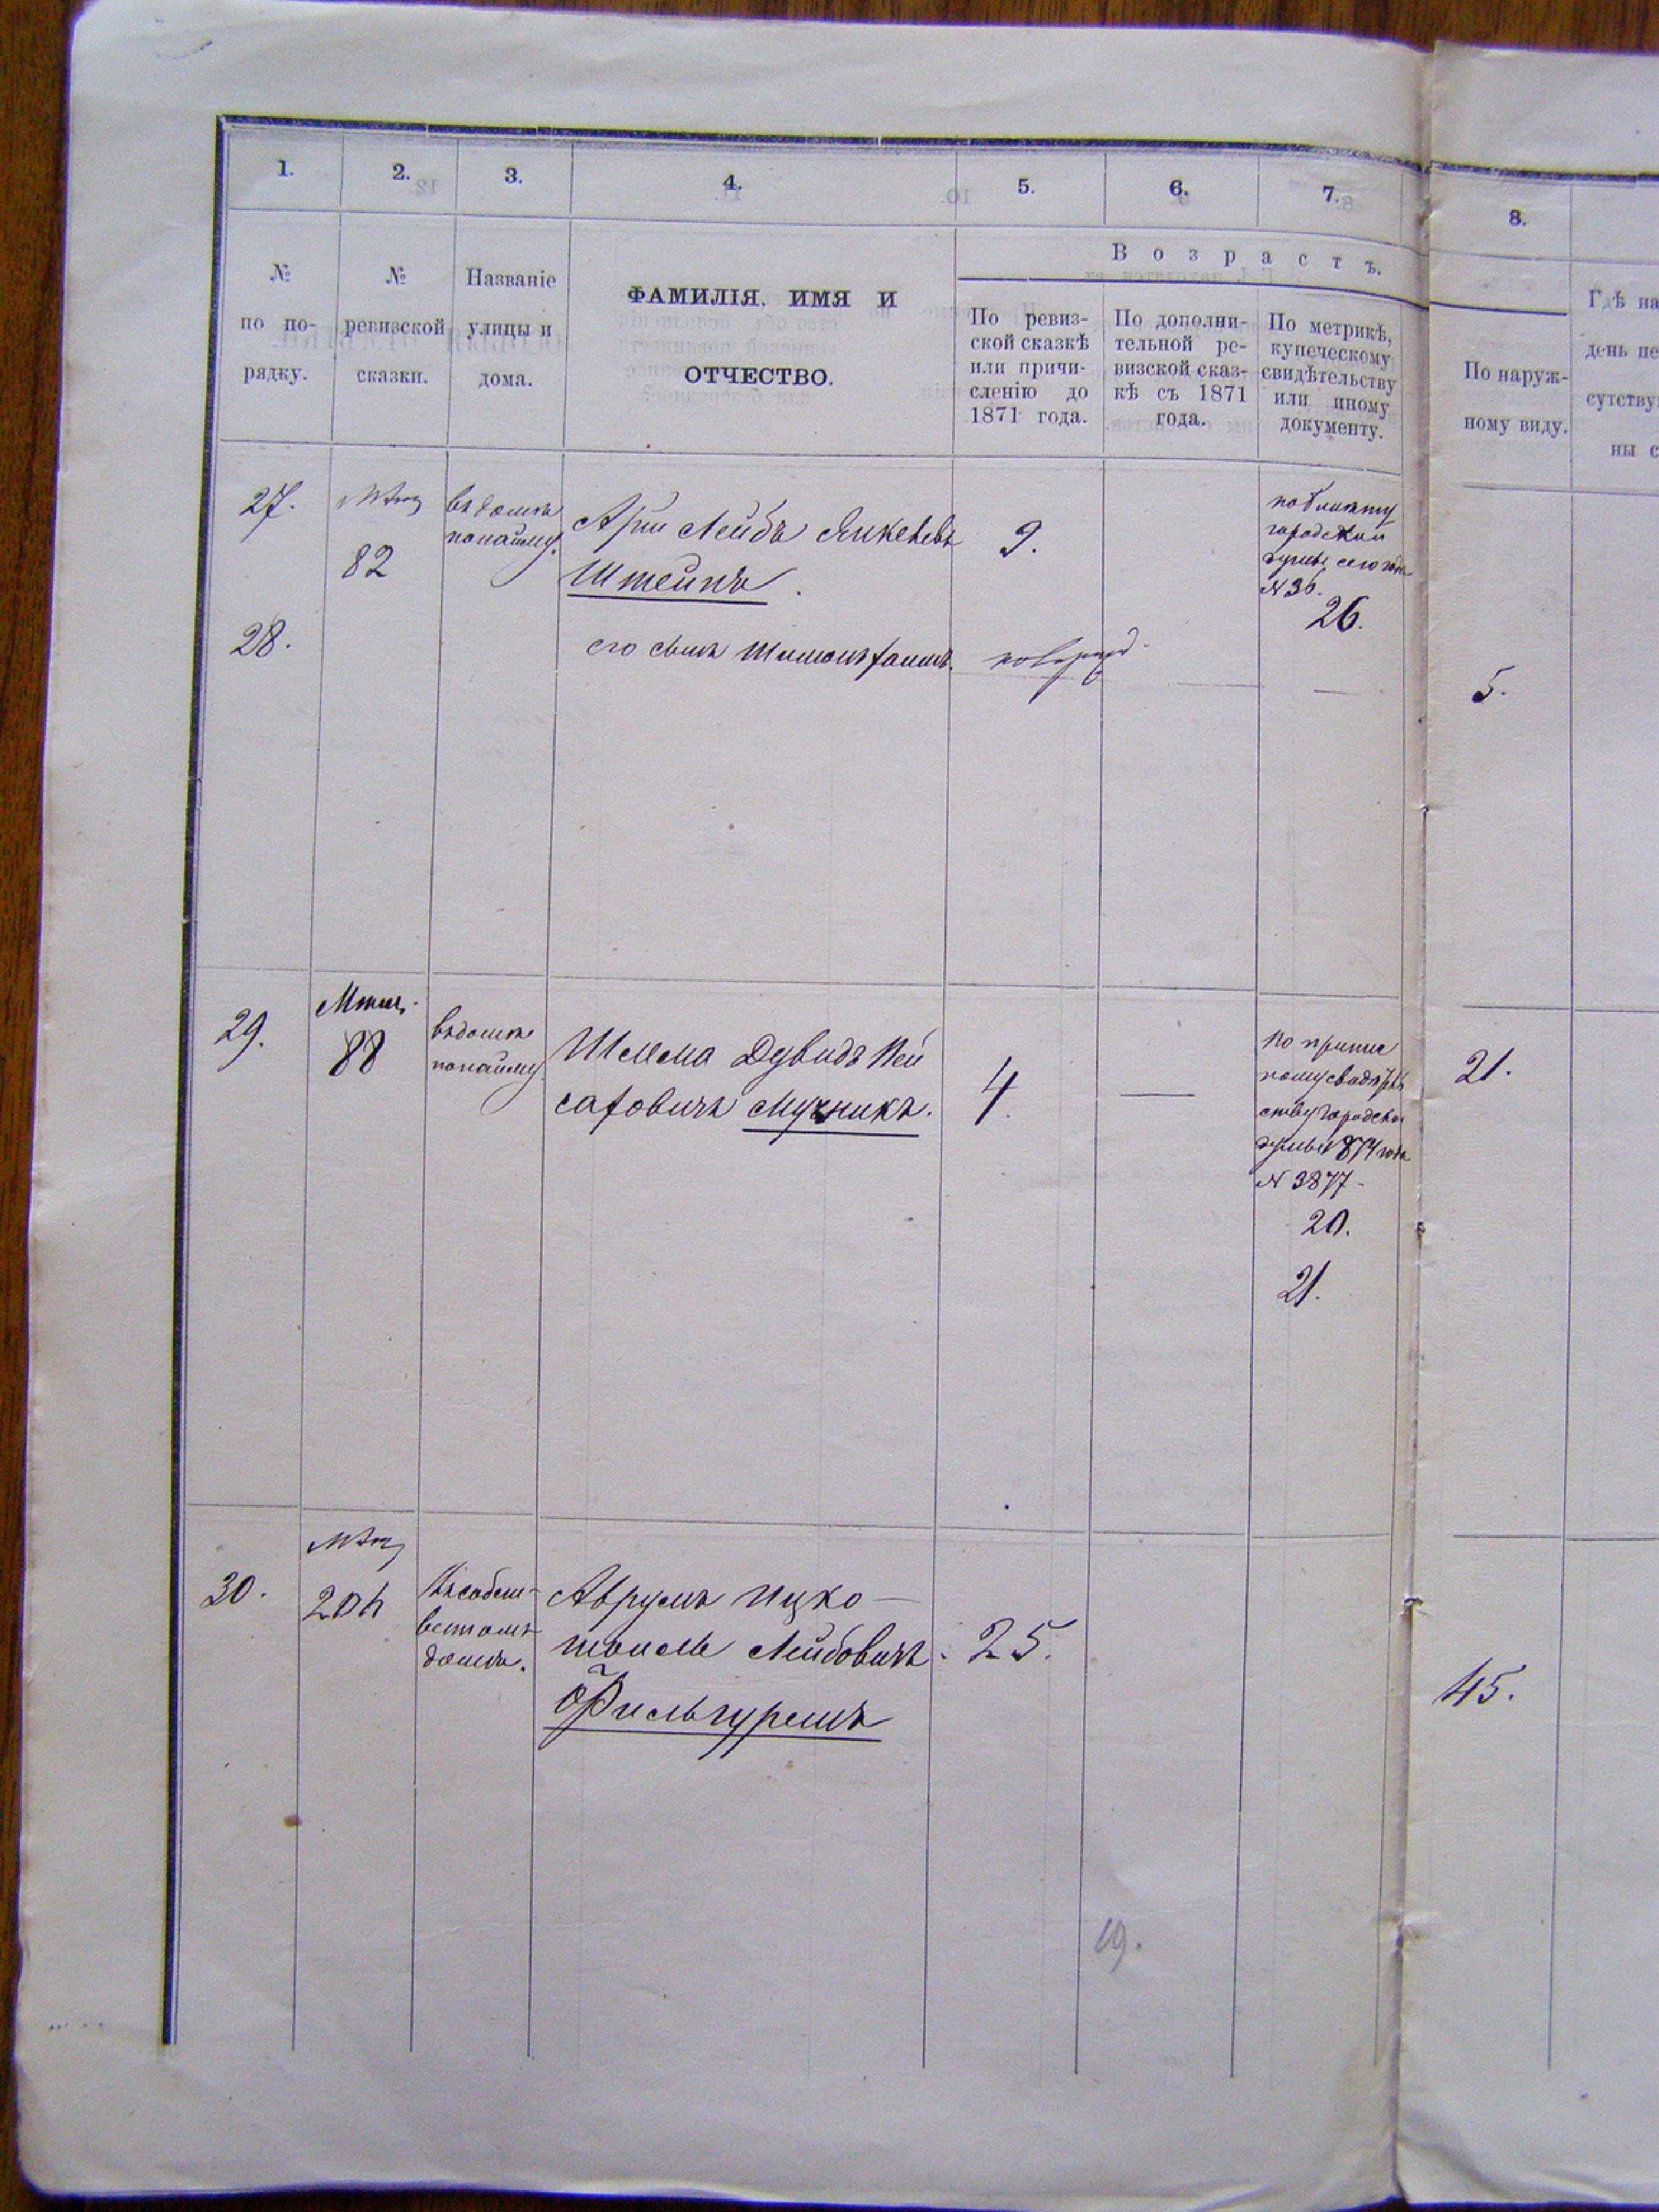 1. 2. 3. 4. 5. 6. 7. 8.
В о з р а с т ъ.
№
по по-
рядку.
№
ревизской
сказки.
Названіе
улицы и
дома.
ФАМИЛІЯ, ИМЯ И
ОТЧЕСТВО.
По ревиз-
ской сказкѣ
или причи-
сленію до
1871 года.
По дополни-
тельной ре-
визской сказ-
кѣ съ 1871
года.
По метрикѣ,
купеческому
свидѣтельству
или иному
документу.
По наруж-
ному виду.
Гдѣ на
день пе
сутству
ны с
27.
82
въ домѣ
по найму.
Арiи Лейбъ Янкелевъ
Штейнъ.
9.
по билету
городской
думы сего года
N 36.
26.
28.
его сынъ
5.
29.
Мѣщ.
88
въ домѣ
по найму.
Шлема Дувидъ Пей
саховичъ Мучникъ.
4.
—
По припис
ному свидѣтель
ству городской
думы 1874 года
N 3877-
20.
21.
21.
30.
204
въ собст-
венномъ
домѣ.
Аврумъ Ицко-
Лейбовичъ
Фильгуремъ
25.
45.
19.